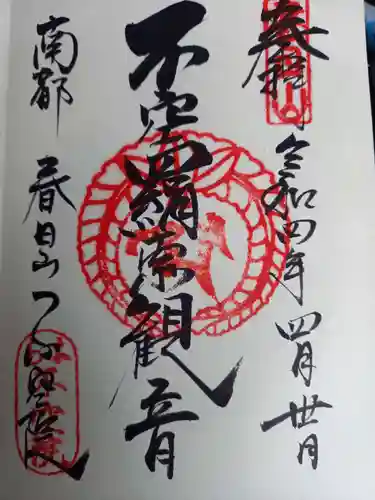 奉拝
令和四年四月廿日
不空羂索観音
南都 春日山 不空院